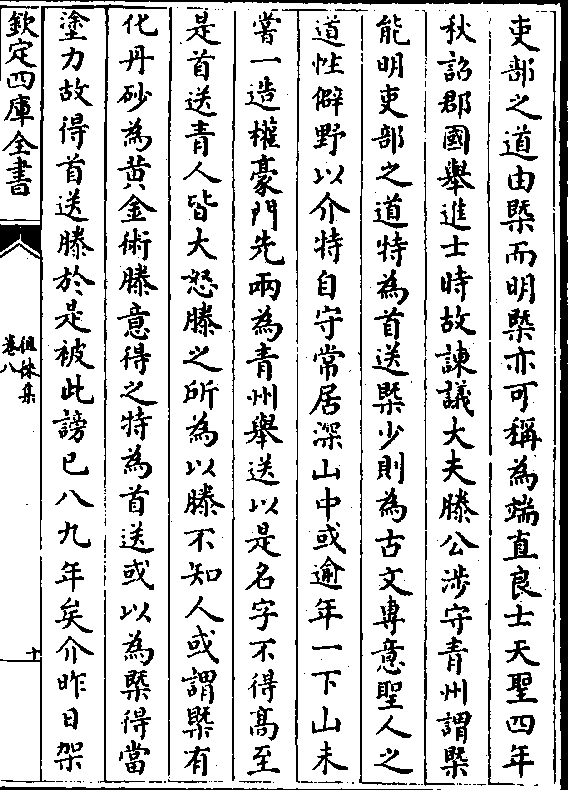 吏部之道由槩而明槩亦可稱為端直良士天聖四年
秋詔郡國舉進士時故諫議大夫滕公涉守青州謂槩
能明吏部之道特為首送槩少則為古文專意聖人之
道性僻野以介特自守常居深山中或逾年一下山未
嘗一造權豪門先兩為青州舉送以是名字不得髙至
是首送青人皆大怒滕之所為以滕不知人或謂槩有
化丹砂為黄金術滕意得之特為首送或以為槩得當
塗力故得首送滕於是被此謗已八九年矣介昨日架
欽定四庫全書
徂徕集
卷八
十